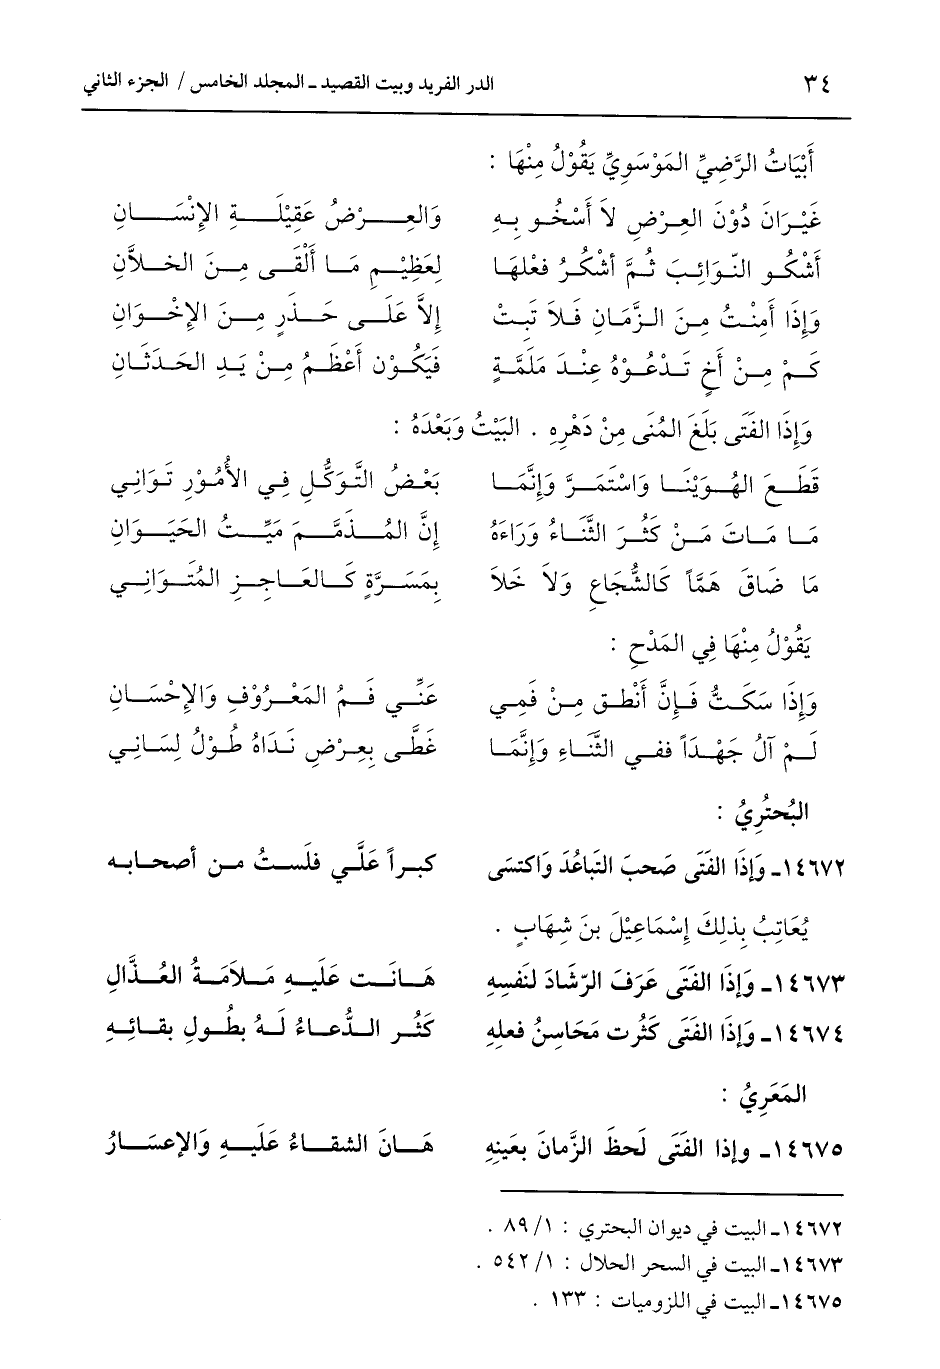 ٣٤ الدر الفريد وبيت القصيد ـ المجلد الخامس / الجزء الثاني
أَبْيَاتُ الرَّضِيِّ المَوْسَوِيِّ يَقُوْلُ مِنْهَا :
غَيْرَانَ دُوْنَ العِرْضِ لاَ أَسْخُو بِهِ وَالعِرْضُ عَقِيْلَةِ الإِنْسَانِ
أَشْكُو النَّوَائِبَ ثُمَّ أَشْكُرُ فِعْلَهَا لِعَظِيْمِ مَا أَلْقَى مِنَ الخِلاَّنِ
وَإِذَا أَمِنْتُ مِنَ الزَّمَانِ فَلاَ تَبِتْ إِلاَّ عَلَى حَذَرٍ مِنَ الإِخْوَانِ
كَمْ مِنْ أَخٍ تَدْعُوْهُ عِنْدَ مُلِمَّةٍ فَيَكُوْن أَعْظَمُ مِنْ يَدِ الحَدَثَانِ
وَإِذَا الفَتَى بَلَغَ المُنَى مِنْ دَهْرِهِ . البَيْتُ وَبَعْدَهُ :
قَطَعَ الهُوَيْنَا وَاسْتَمَرَّ وَإِنَّمَا بَعْضُ التَّوَكُّلِ فِي الأُمُوْرِ تَوَانِي
مَا مَاتَ مَنْ كَثُرَ الثَّنَاءُ وَرَاءَهُ إِنَّ المُذَمَّمَ مَيِّتُ الحَيَوَانِ
مَا ضَاقَ هَمّاً كَالشُّجَاعِ وَلاَ خَلاَ بِمَسَرَّةٍ كَالعَاجِزِ المُتَوَانِي
يَقُوْلُ مِنْهَا فِي المَدْحِ :
وَإِذَا سَكَتُّ فَإِنَّ أَنْطَقَ مِنْ فَمِي عَنِّي فَمُ المَعْرُوْفِ وَالإِحْسَانِ
لَمْ آلُ جَهْداً ففي الثَّنَاءِ وَإِنَّمَا غَطَّى بِعِرْضِ نَدَاهُ طُوْلُ لِسَانِي
البُحتُرِيُّ :
١٤٦٧٢ـ وَإِذَا الفَتَى صَحبَ التبَاعُدَ وَاكتسَى كبراً عَلَّي فلَستُ من أصحابه
يُعَاتِبُ بِذلِكَ إِسْمَاعِيْلَ بن شِهَابٍ .
١٤٦٧٣ـ وَإِذَا الفَتَى عَرَفَ الرَّشَادَ لنَفسِهِ هَانَت عَليهِ مَلاَمَةُ العُذَّالِ
١٤٦٧٤ـ وَإِذَا الفَتَى كثُرت مَحَاسِنُ فعلهِ كثُر الدُّعَاءُ لَهُ بطُولِ بقَائِهِ
المَعَرِيُّ :
١٤٦٧٥ـ وإذا الفَتَى لَحظَ الزَّمانَ بعَينِهِ هَانَ الشقاءُ عَلَيهِ وَالإعسَارُ
١٤٦٧٢ـ البيت في ديوان البحتري : ١/ ٨٩ .
١٤٦٧٣ـ البيت في السحر الحلال : ١/ ٥٤٢ .
١٤٦٧٥ـ البيت في اللزوميات : ١٣٣ .